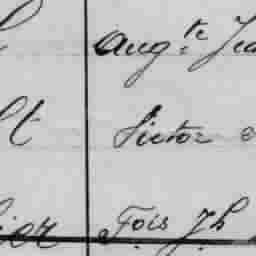 Aug.te Jea
lt Victor
ier Fois J.h